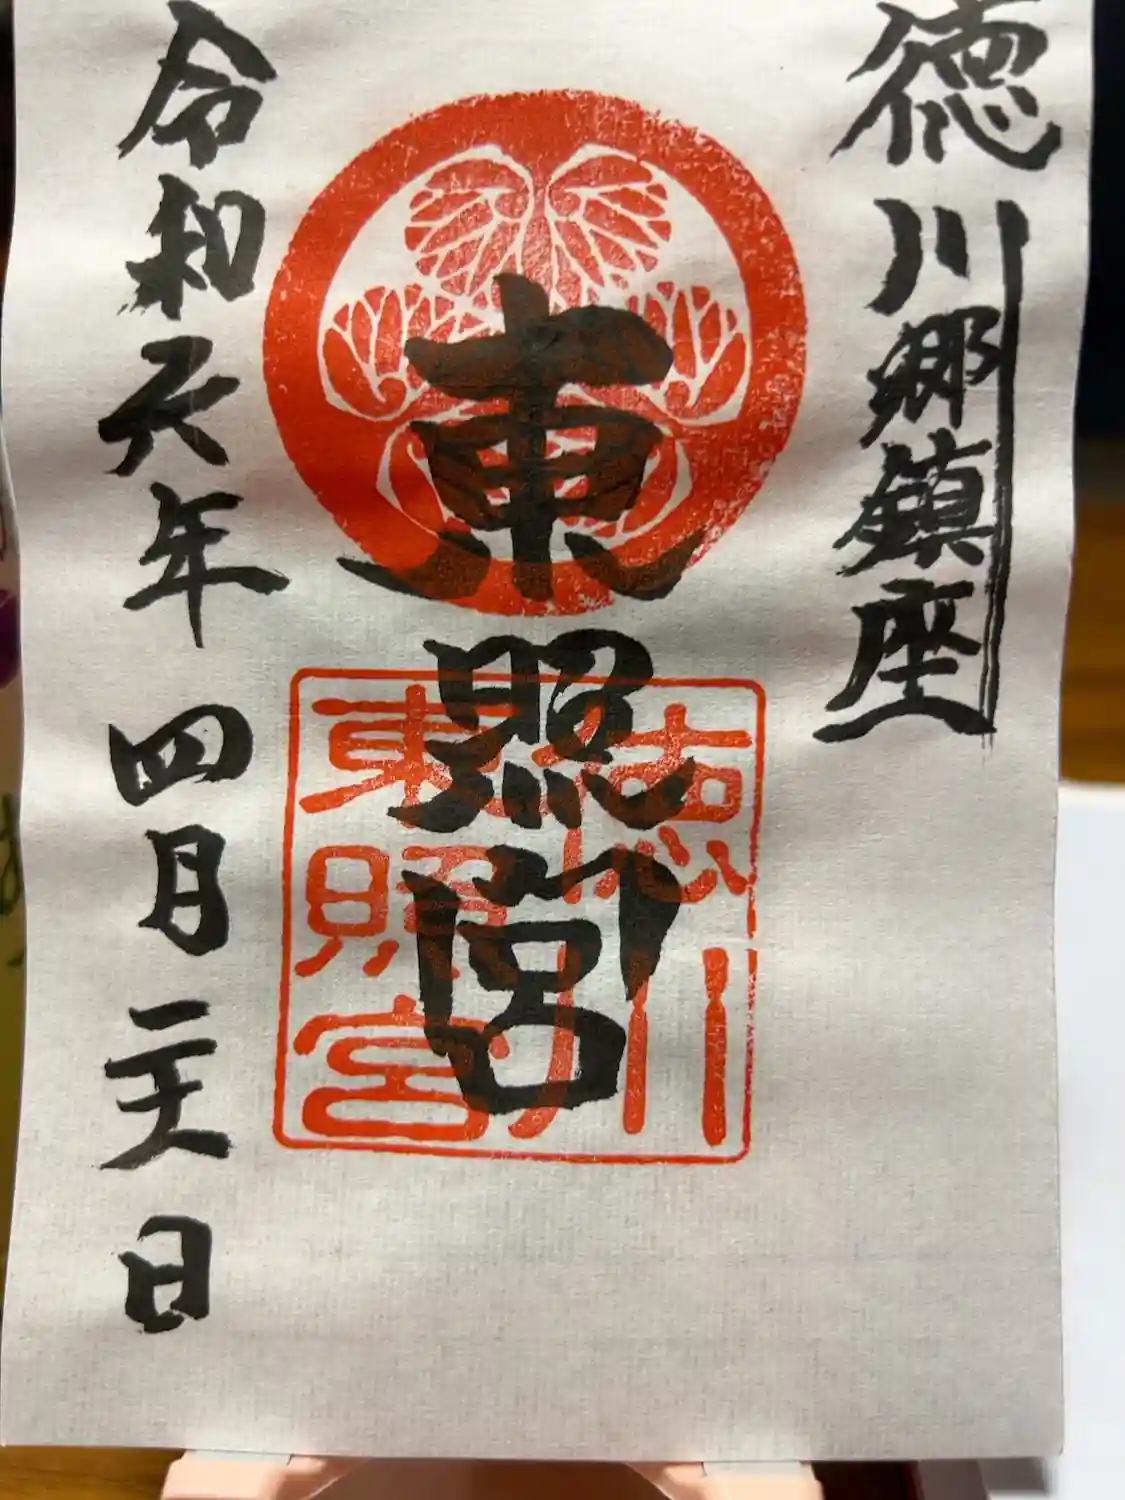 徳川郷鎮座
東照宮
徳川
東照宮
令和六年四月 日